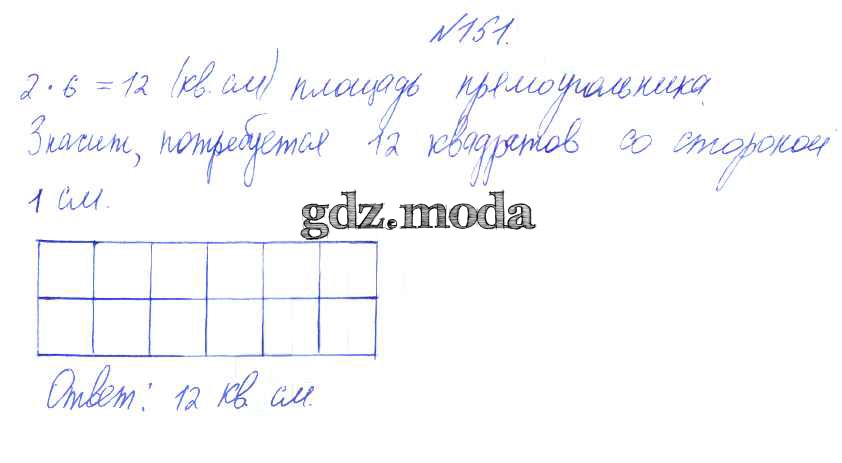 №151.
2 · 6 = 12 (кв. см) площадь прямоугольника.
Значит, потребуется 12 квадратов со стороной
1 см.
gdz.moda
Ответ: 12 кв. см.